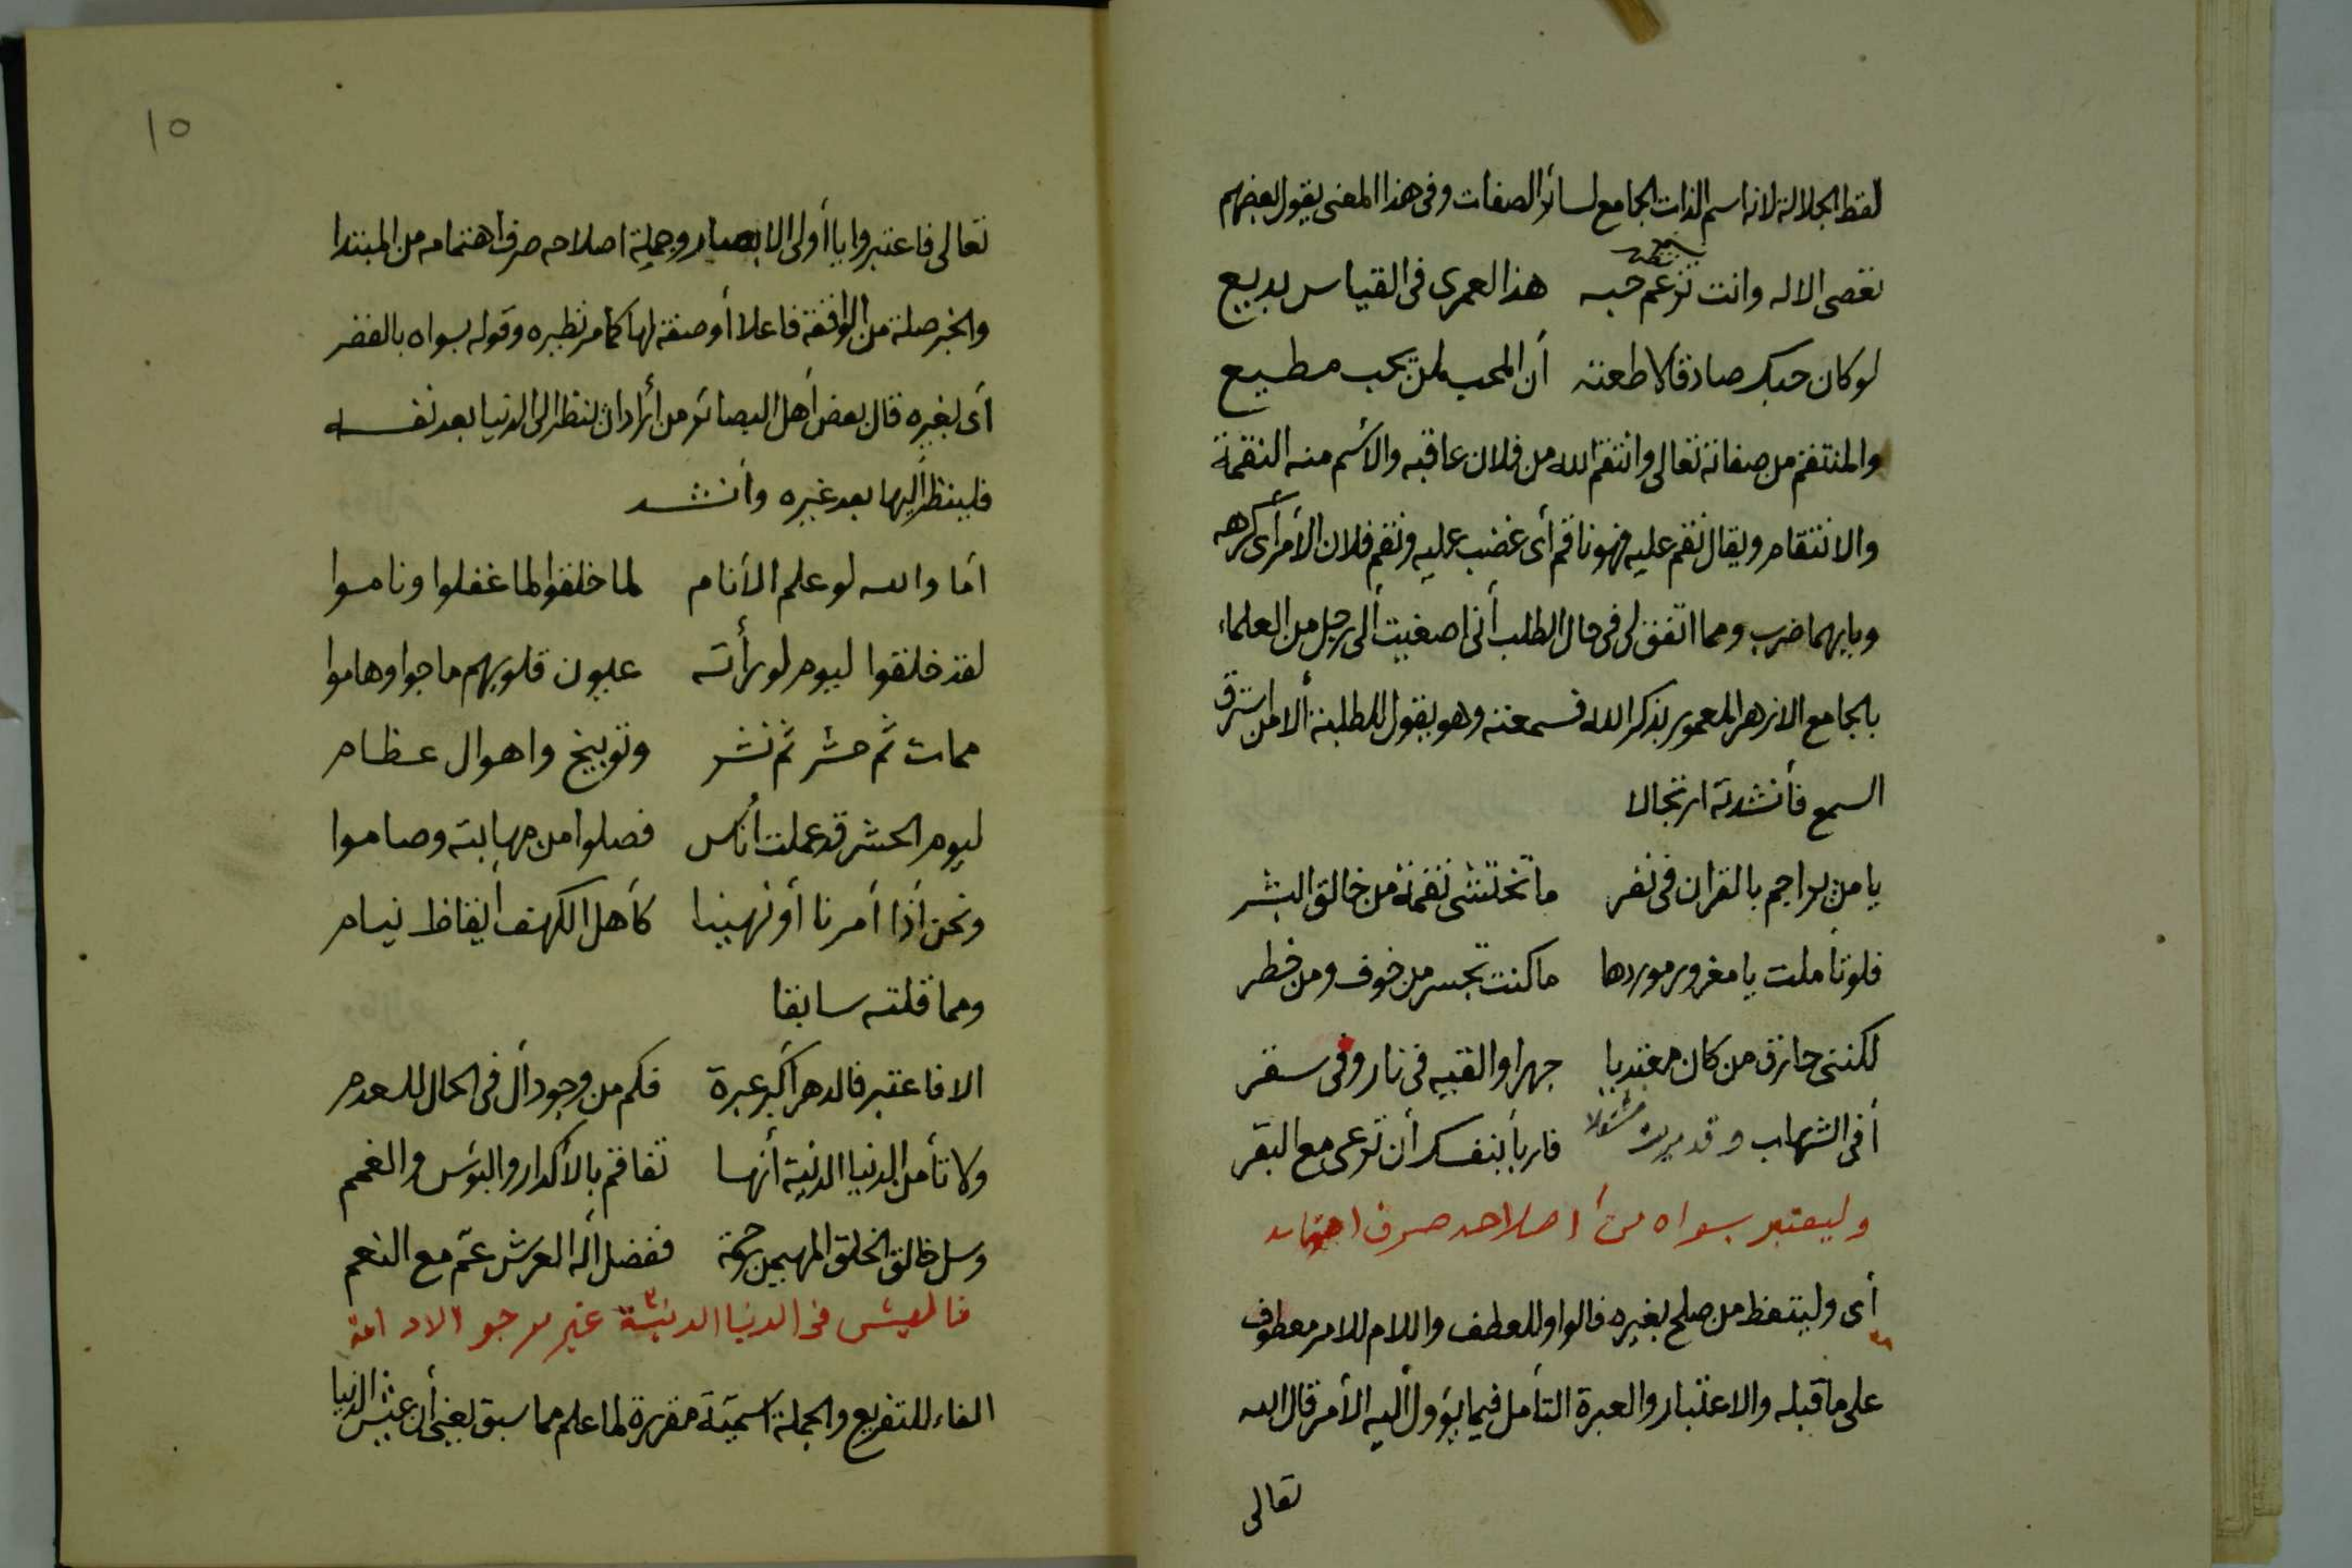 لفظ الجلالة لانه اسم الذات الجامع لسائر الصفات وفى هذا المعنى يقول بعضهم
تعصى الاله وانت تزعم حبه هذا لعمرى فى القياس بديع
تظهر
لو كان حبك صادقا لأطعته أن المحب لمن يحب مطيع
والمنتقم من صفاته تعالى وانتقم الله من فلان عاقبه والأسم منه النقمة
والانتقام ويقال نقم عليه فهو ناقم أى غضب عليه ونقم فلان الأمر أى كرهه
وبابهما ضرب ومما اتفق لى فى حال الطلب أنى اصغيت ألى رجل من العلماء
بالجامع الازهر المعمور بذكر الله فسمعته وهو يقول للطلبة ألا من استرق
السمع فأنشدته ارتجالا
يا من يراجم بالقران فى نفر ما تختشى نقمة من خالق البشر
فلو تأملت يا مغرور موردها ما كنت تجسر من خوف ومن خطر
لكننى حازق من كان مفتديا جهرا والقيه فى نار وفى سقر
أفى الشهاب وقد فاربأ بنفسك أن ترعى مع البقر
وليعتبر بسواه من أصلاحه صرف اهتمامه
أى وليتعظ من صلح بغيره فالواو للعطف واللام للامر معطوف
على ما قبله والاعتبار والعبرة التأمل فيما يؤول أليه الأمر قال الله
تعالى
١٥
تعالى فاعتبروا يا أولى الابصار وجملة اصلاحه صرف اهتمامه من المبتدا
والخبر صلة من الواقعة فاعلا أو صفة لها كما مر نظيره وقوله بسواه بالقصر
أى بغيره قال بعض أهل البصائر من أراد ان ينظر الى الدنيا بعد نفسه
فلينظر أليها بعد غيره وأنشد
أما والله لو علم الأنام لما خلقوا لما غفلوا وناموا
لقد خلقوا ليوم لو رأته عيون قلوبهم ماجوا وهاموا
ممات ثم حشر ثم نشر وتوبيخ واهوال عظام
ليوم الحشر قد عملت اناس فصلوا من مهابته وصاموا
ونحن أذا أمرنا أو نهينا كأهل الكهف أيقاظ نيام
ومما قلته سابقا
الا فاعتبر فالدهر أكبر عبرة فكم من وجود أل فى الحال للعدم
ولا تأمن الدنيا الدنية أنها تفاقم بالأكدار والبؤس والغمم
وسل خالق الخلق المهيمن رحمة ففضل أله العرش عم مع النعم
فالعيش فى الدنيا الدنية غير مرجو الادامة
الفاء للتفريع والجملة أسمية مقررة لما علم مما سبق يعنى أن عيش الدنيا